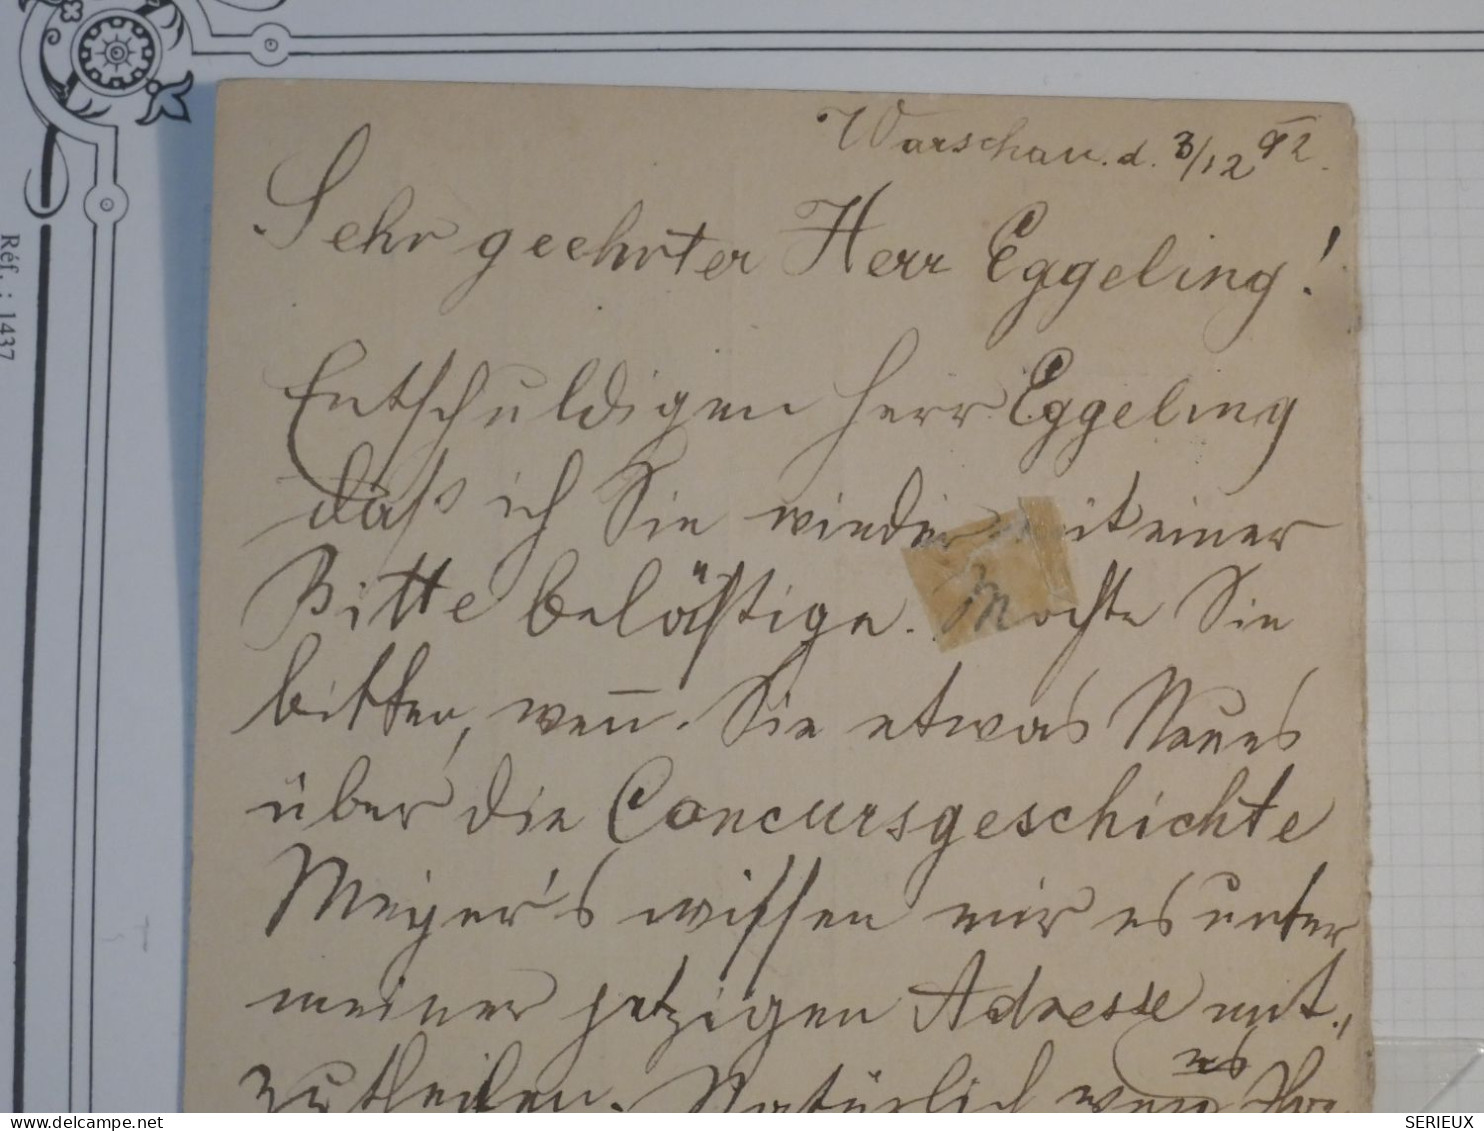 Warschau. d. 3/12 92.
Sehr geehrter Herr Eggeling!
Entschuldigen Herr Eggeling
daß ich Sie wieder mit einer
Bitte belästige. Möchte Sie
bitten, wen̅. Sie etwas Neues
über die Concursgeschichte
Meyer's wissen mir es unter
meiner jetzigen Adresse mit-
zutheilen. Natürlich wen̅ es Ihre
Réf. : 1437
SERIEUX